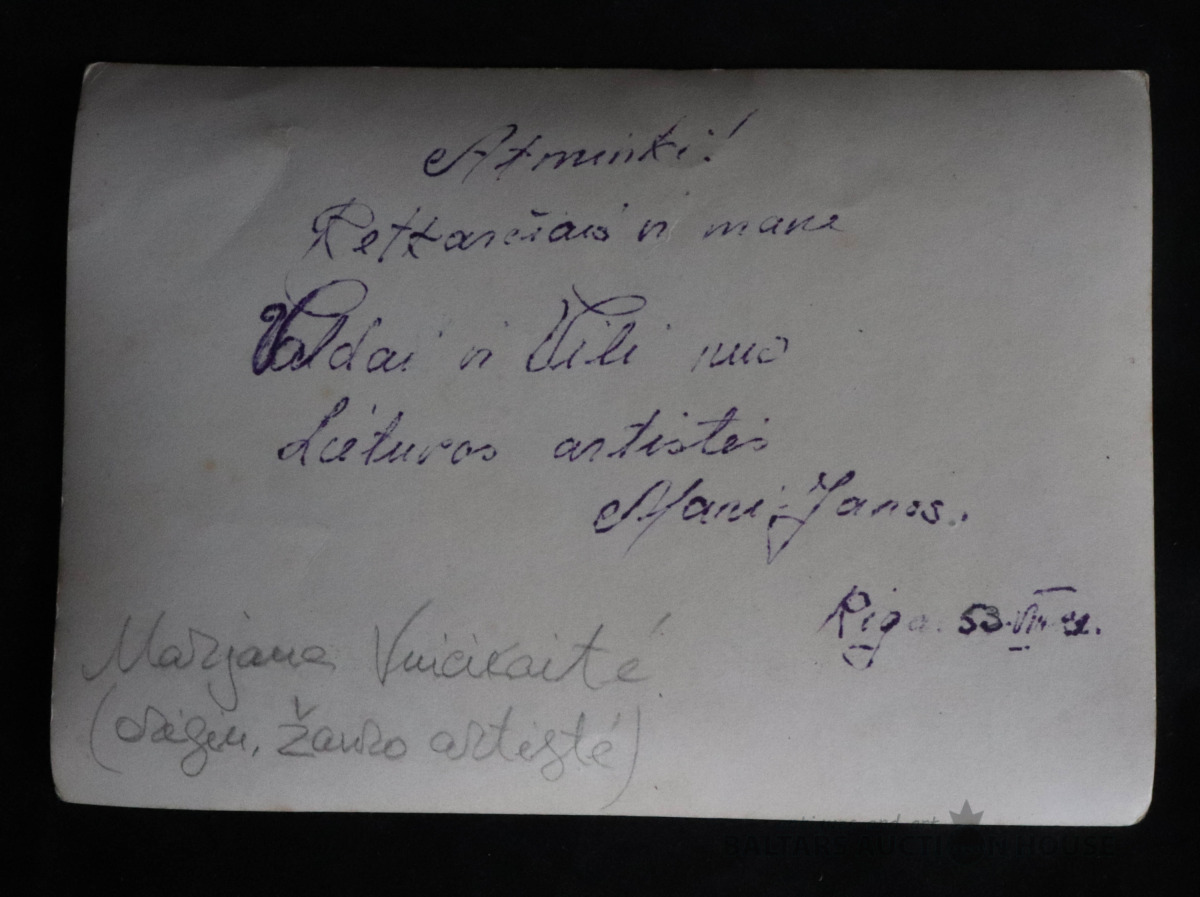 Atminki!
Retkarčiais ir mane
Valdai ir Vili nuo
Lietuvos artistės
Mani-Janos.
Riga. 53.
Marijana
(origin. žanro artistė)
BALTARS AUCTION HOUSE